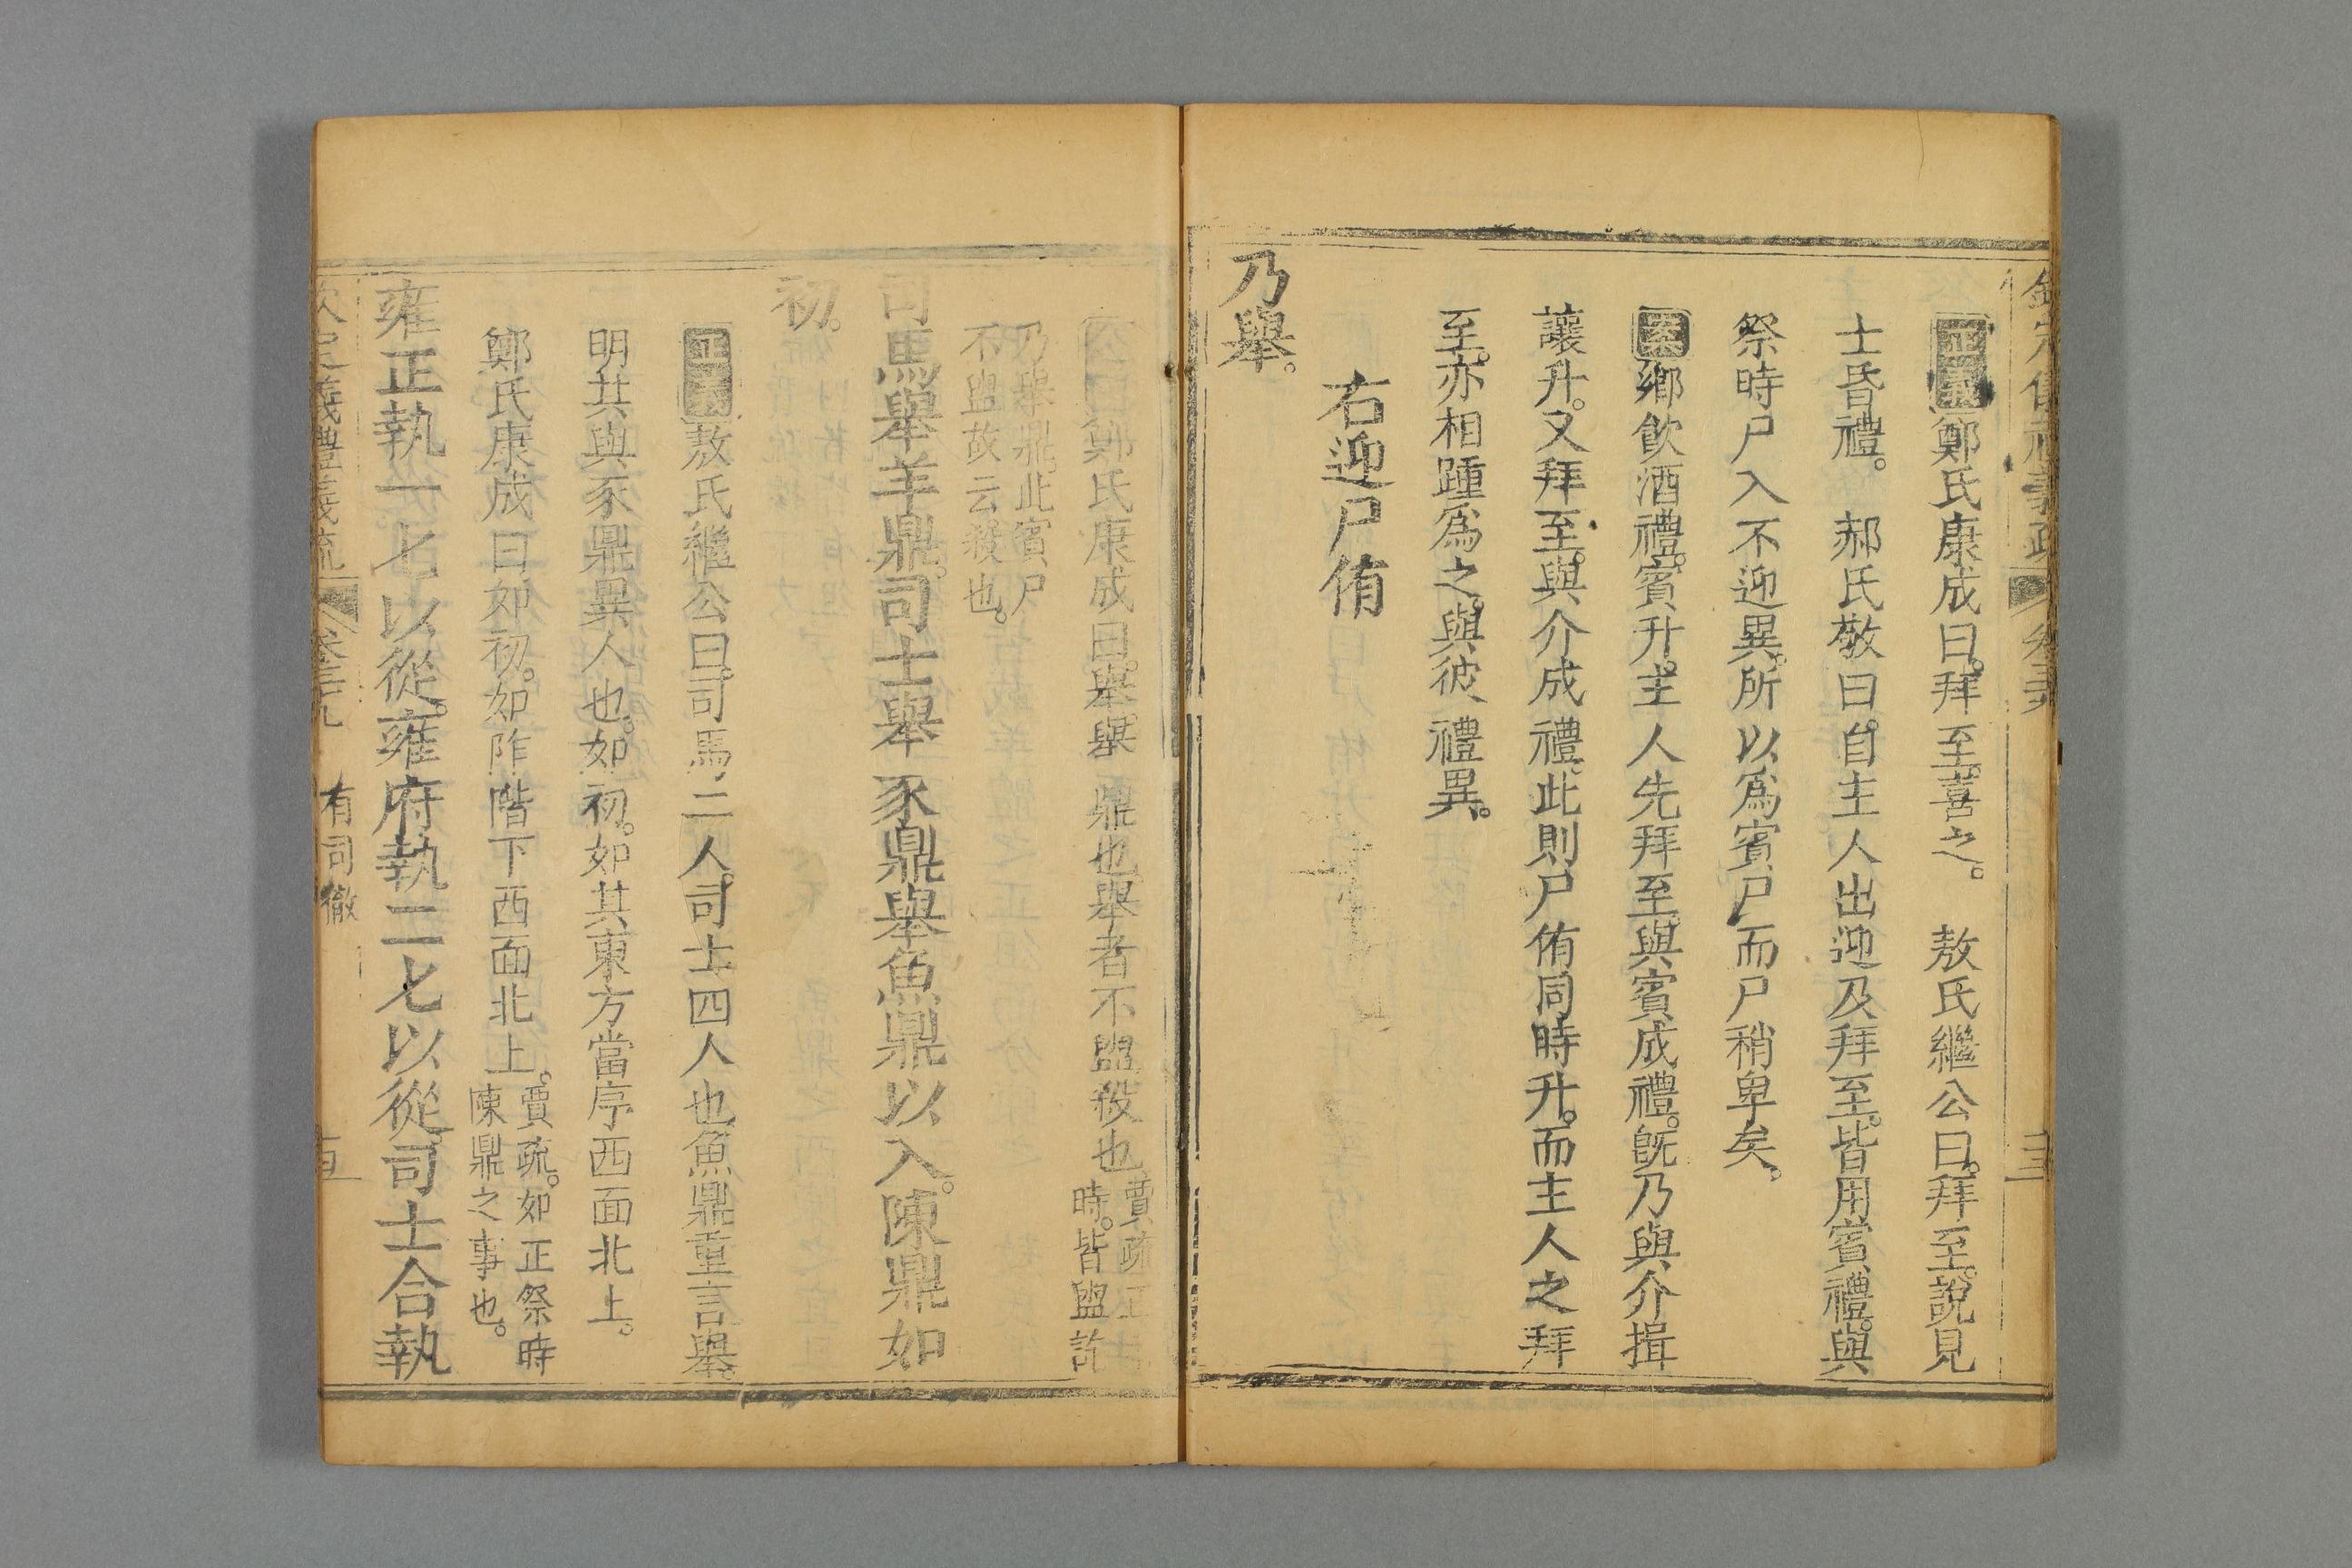 正義鄭氏康成曰。拜至。喜之。　敖氏繼公曰。拜至。說見
士昏禮。　郝氏敬曰。自主人出迎及拜至。皆用賓禮。與
祭時尸入不迎異。所以爲賓尸而尸稍卑矣。
案鄉飲酒禮。賓升。主人先拜至。與賓成禮。旣乃與介揖
讓升。又拜至。與介成禮。此則尸侑同時升。而主人之拜
至。亦相踵爲之。與彼禮異。
右迎尸侑
乃舉。
鄭氏康成曰。舉。舉鼎也。舉者不盥。殺也。賈疏。正
時。皆盥訖
乃舉鼎。此賓尸
不盥。故云殺也。
司馬舉羊鼎。司士舉豕鼎。舉魚鼎。以入。陳鼎如
初。
正義敖氏繼公曰。司馬二人。司士四人也。魚鼎重言舉。
明其與豕鼎異人也。如初。如其東方當序西面北上。
鄭氏康成曰。如初。如阼階下西面北上。賈疏。如正祭時
陳鼎之事也。
雍正執一匕以從。雍府執二匕以從。司士合執
欽定儀禮義疏　卷三十九　有司徹